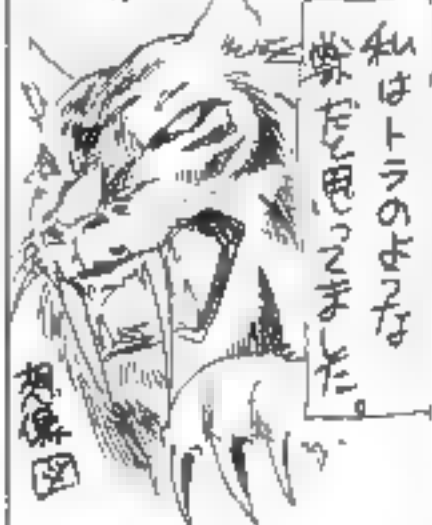 私はトラのような
獣だと思ってました。
想像図